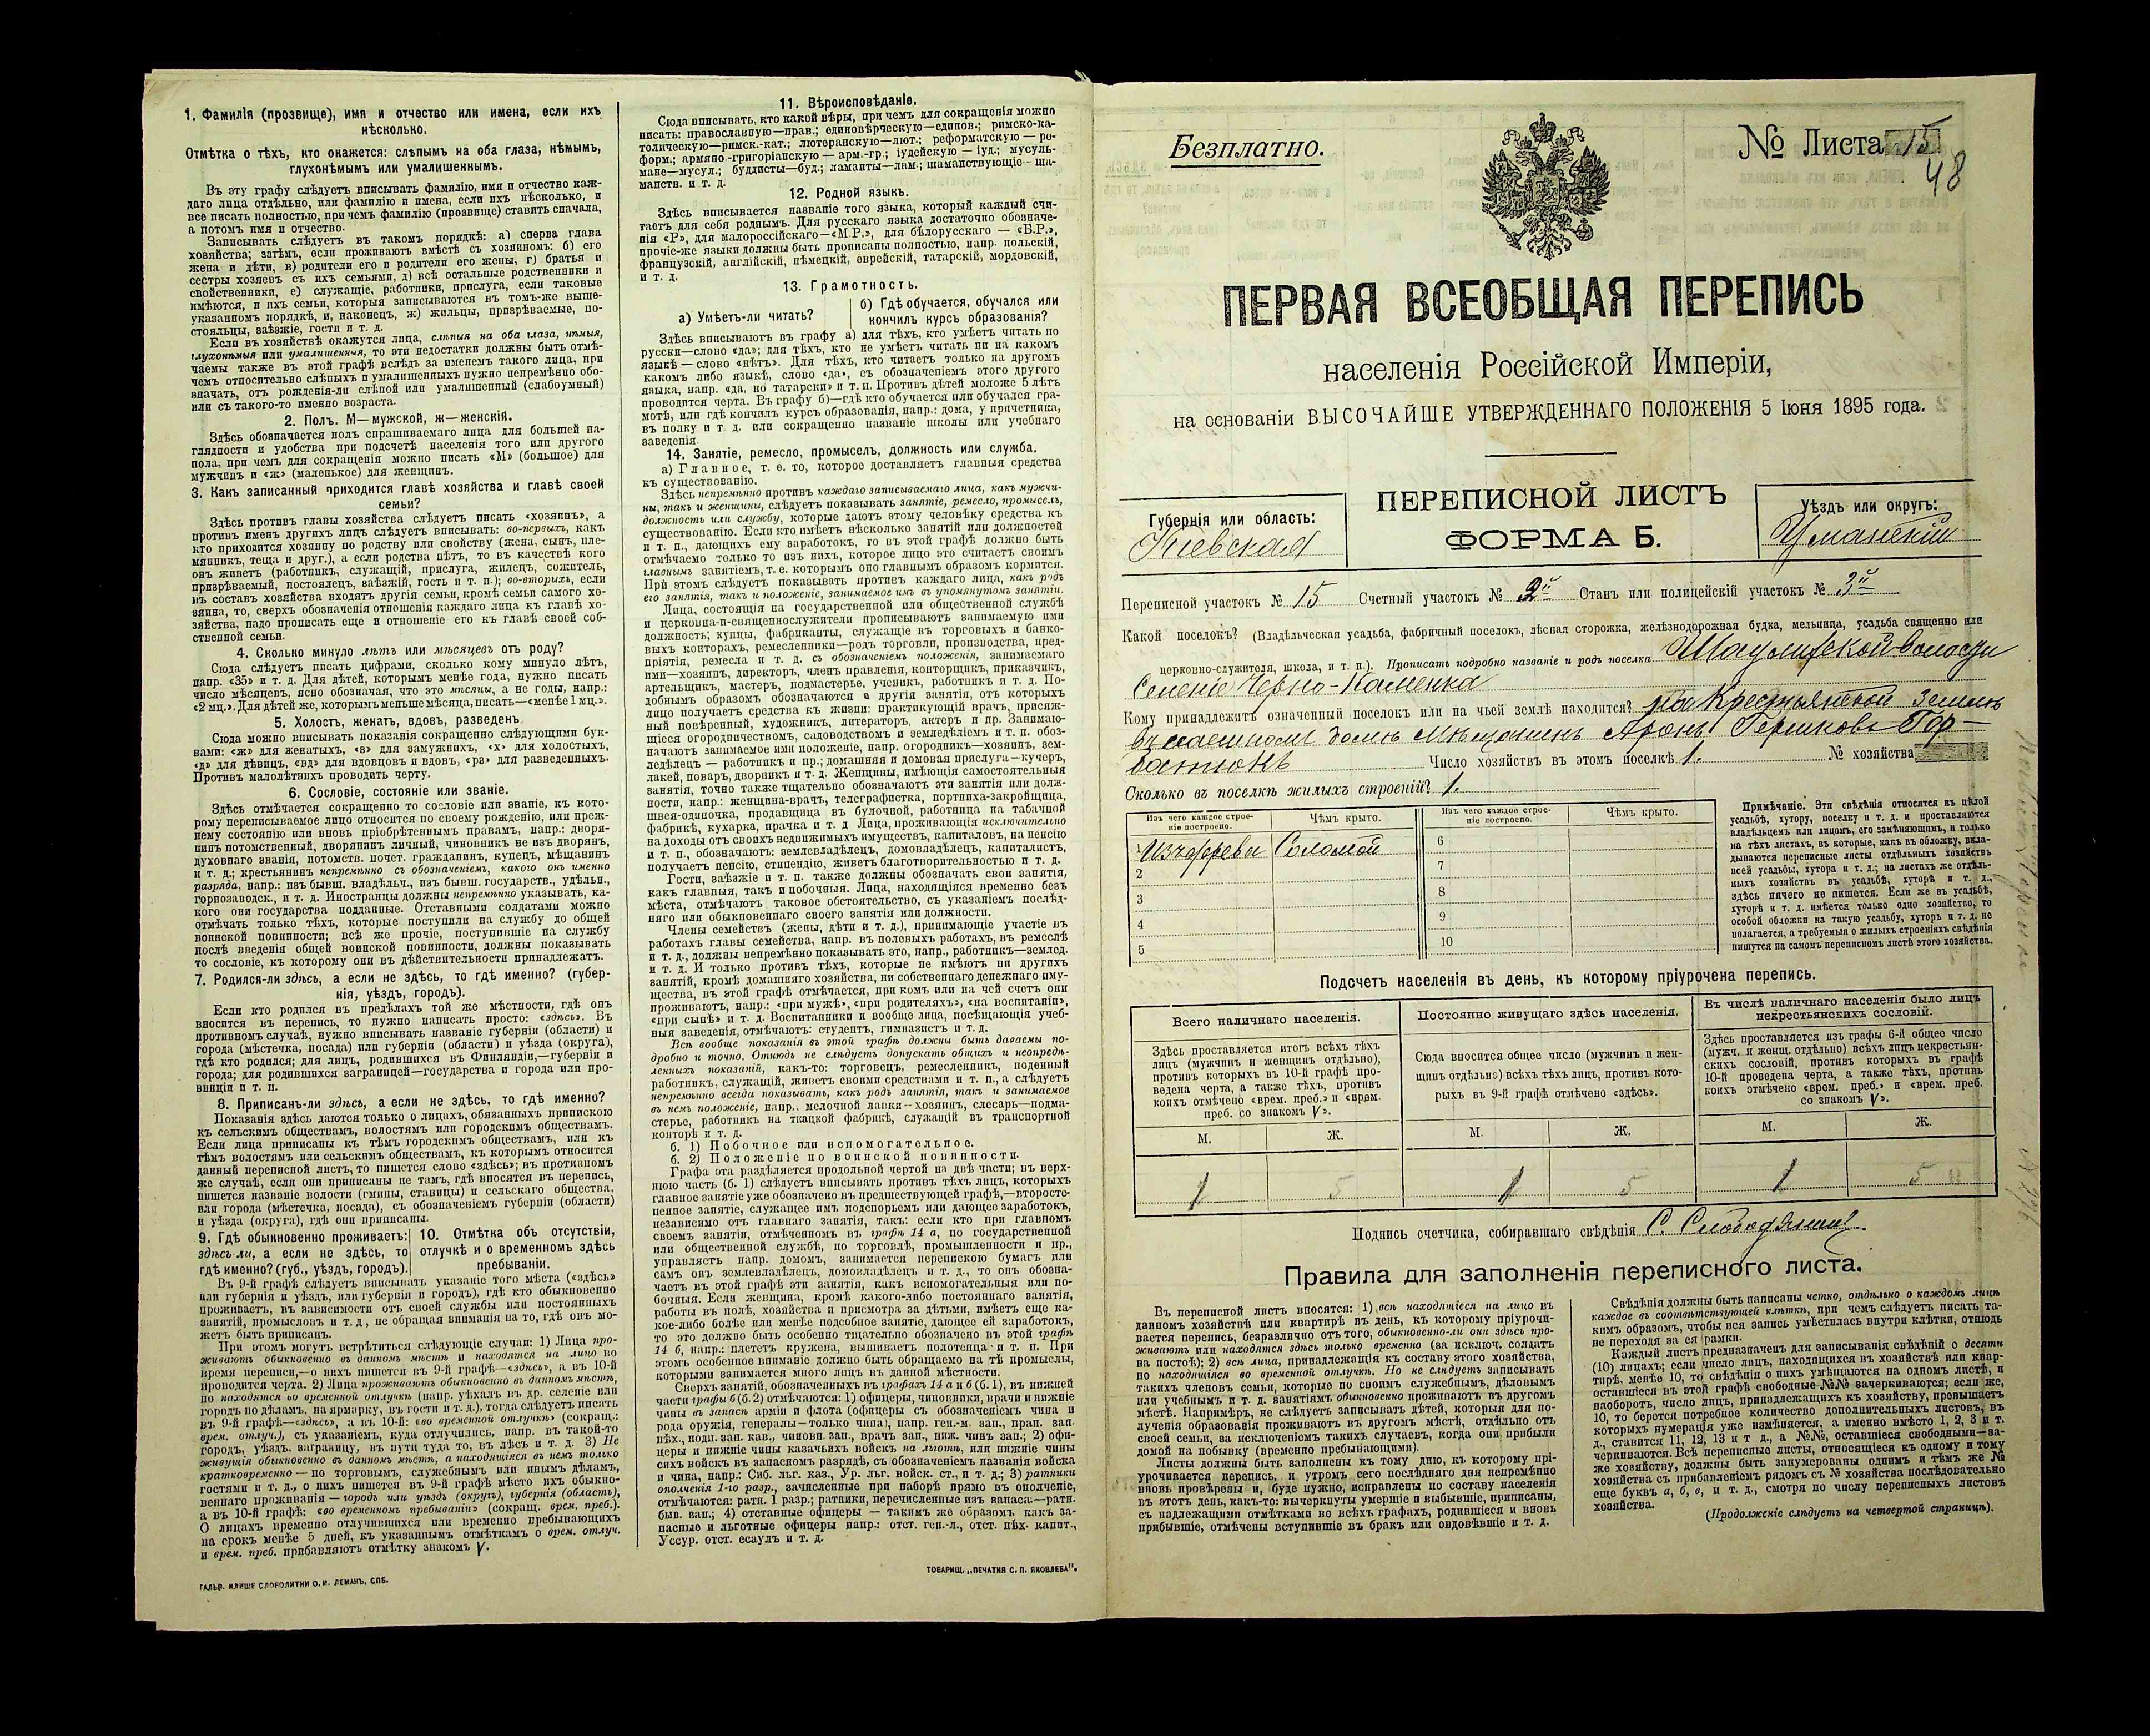 1. Фамилія (прозвище), имя и отчество или имена, если ихъ
нѣсколько.
Отмѣтка о тѣхъ, кто окажется: слѣпымъ на оба глаза, нѣмымъ,
глухонѣмымъ или умалишеннымъ.
Въ эту графу слѣдуетъ вписывать фамилію, имя и отчество каж-
даго лица отдѣльно, или фамилію и имена, если ихъ нѣсколько, и
все писать полностью, при чемъ фамилію (прозвище) ставить сначала,
а потомъ имя и отчество.
Записывать слѣдуетъ въ такомъ порядкѣ: а) сперва глава
хозяйства; затѣмъ, если проживаютъ вмѣстѣ съ хозяиномъ: б) его
жена и дѣти, в) родители его и родители его жены, г) братья и
сестры хозяевъ съ ихъ семьями, д) всѣ остальные родственники и
свойственники, е) служащіе, работники, прислуга, если таковые
имѣются, и ихъ семьи, которыя записываются въ томъ-же выше-
указанномъ порядкѣ, и, наконецъ, ж) жильцы, призрѣваемые, по-
стояльцы, заѣзжіе, гости и т. д.
Если въ хозяйствѣ окажутся лица, слѣпыя на оба глаза, нѣмыя,
глухонѣмыя или умалишенныя, то эти недостатки должны быть отмѣ-
чаемы также въ этой графѣ вслѣдъ за именемъ такого лица, при
чемъ относительно слѣпыхъ и умалишенныхъ нужно непремѣнно обо-
значать, отъ рожденія-ли слѣпой или умалишенный (слабоумный)
или съ такого-то именно возраста.
2. Полъ. М—мужской, ж—женскій.
Здѣсь обозначается полъ спрашиваемаго лица для большей на-
глядности и удобства при подсчетѣ населенія того или другого
пола, при чемъ для сокращенія можно писать «М» (большое) для
мужчинъ и «ж» (маленькое) для женщинъ.
3. Какъ записанный приходится главѣ хозяйства и главѣ своей
семьи?
Здѣсь противъ главы хозяйства слѣдуетъ писать «хозяинъ», а
противъ именъ другихъ лицъ слѣдуетъ вписывать: во-первыхъ, какъ
кто приходится хозяину по родству или свойству (жена, сынъ, пле-
мянникъ, теща и друг.), а если родства нѣтъ, то въ качествѣ кого
онъ живетъ (работникъ, служащій, прислуга, жилецъ, сожитель,
призрѣваемый, постоялецъ, заѣзжій, гость и т. п.); во-вторыхъ, если
въ составъ хозяйства входятъ другія семьи, кромѣ семьи самого хо-
зяина, то, сверхъ обозначенія отношенія каждаго лица къ главѣ хо-
зяйства, надо прописать еще и отношеніе его къ главѣ своей соб-
ственной семьи.
4. Сколько минуло лѣтъ или мѣсяцевъ отъ роду?
Сюда слѣдуетъ писать цифрами, сколько кому минуло лѣтъ,
напр. «35» и т. д. Для дѣтей, которымъ менѣе года, нужно писать
число мѣсяцевъ, ясно обозначая, что это мѣсяцы, а не годы, напр.:
«2 мц.». Для дѣтей же, которымъ меньше мѣсяца, писать—«менѣе 1 мц.».
5. Холостъ, женатъ, вдовъ, разведенъ.
Сюда можно вписывать показанія сокращенно слѣдующими бук-
вами: «ж» для женатыхъ, «з» для замужнихъ, «х» для холостыхъ,
«д» для дѣвицъ, «вд» для вдовцовъ и вдовъ, «рз» для разведенныхъ.
Противъ малолѣтнихъ проводить черту.
6. Сословіе, состояніе или званіе.
Здѣсь отмѣчается сокращенно то сословіе или званіе, къ кото-
рому переписываемое лицо относится по своему рожденію, или преж-
нему состоянію или вновь пріобрѣтеннымъ правамъ, напр.: дворя-
нинъ потомственный, дворянинъ личный, чиновникъ не изъ дворянъ,
духовнаго званія, потомств. почет. гражданинъ, купецъ, мѣщанинъ
и т. д.; крестьянинъ непремѣнно съ обозначеніемъ, какого онъ именно
разряда, напр.: изъ бывш. владѣльч., изъ бывш. государств., удѣльн.,
горнозаводск., и т. д. Иностранцы должны непремѣнно указывать, ка-
кого они государства подданные. Отставными солдатами можно
отмѣчать только тѣхъ, которые поступили на службу до общей
воинской повинности; всѣ же прочіе, поступившіе на службу
послѣ введенія общей воинской повинности, должны показывать
то сословіе, къ которому они въ дѣйствительности принадлежатъ.
7. Родился-ли здѣсь, а если не здѣсь, то гдѣ именно? (губер-
нія, уѣздъ, городъ).
Если кто родился въ предѣлахъ той же мѣстности, гдѣ онъ
вносится въ перепись, то нужно написать просто: «здѣсь». Въ
противномъ случаѣ, нужно вписывать названіе губерніи (области) и
города (мѣстечка, посада) или губерніи (области) и уѣзда (округа),
гдѣ кто родился; для лицъ, родившихся въ Финляндіи,—губерніи и
города; для родившихся заграницей—государства и города или про-
винціи и т. п.
8. Приписанъ-ли здѣсь, а если не здѣсь, то гдѣ именно?
Показанія здѣсь даются только о лицахъ, обязанныхъ припискою
къ сельскимъ обществамъ, волостямъ или городскимъ обществамъ.
Если лица приписаны къ тѣмъ городскимъ обществамъ, или къ
тѣмъ волостямъ или сельскимъ обществамъ, къ которымъ относится
данный переписной листъ, то пишется слово «здѣсь»; въ противномъ
же случаѣ, если они приписаны не тамъ, гдѣ вносятся въ перепись,
пишется названіе волости (гмины, станицы) и сельскаго общества,
или города (мѣстечка, посада), съ обозначеніемъ губерніи (области)
и уѣзда (округа), гдѣ они приписаны.
9. Гдѣ обыкновенно проживаетъ:
здѣсь ли, а если не здѣсь, то
гдѣ именно? (губ., уѣздъ, городъ).
10. Отмѣтка объ отсутствіи,
отлучкѣ и о временномъ здѣсь
пребываніи.
Въ 9-й графѣ слѣдуетъ вписывать указаніе того мѣста («здѣсь»
или губернія и уѣздъ, или губернія и городъ), гдѣ кто обыкновенно
проживаетъ, въ зависимости отъ своей службы или постоянныхъ
занятій, промысловъ и т. д, не обращая вниманія на то, гдѣ онъ мо-
жетъ быть приписанъ.
При этомъ могутъ встрѣтиться слѣдующіе случаи: 1) Лица про-
живаютъ обыкновенно въ данномъ мѣстѣ и находятся на лицо во
время переписи,—о нихъ пишется въ 9-й графѣ—«здѣсь», а въ 10-й
проводится черта. 2) Лица проживаютъ обыкновенно въ данномъ мѣстѣ,
но находятся во временной отлучкѣ (напр. уѣхалъ въ др. селеніе или
городъ по дѣламъ, на ярмарку, въ гости и т. д.), тогда слѣдуетъ писать
въ 9-й графѣ—«здѣсь», а въ 10-й: «во временной отлучкѣ» (сокращ.:
врем. отлуч.), съ указаніемъ, куда отлучились, напр. въ такой-то
городъ, уѣздъ, заграницу, въ пути туда то, въ лѣсъ и т. д. 3) Не
живущія обыкновенно въ данномъ мѣстѣ, а находящіяся въ немъ только
кратковременно — по торговымъ, служебнымъ или инымъ дѣламъ,
гостями и т. д., о нихъ пишется въ 9-й графѣ мѣсто ихъ обыкно-
веннаго проживанія — городъ или уѣздъ (округъ), губернія (область),
а въ 10-й графѣ: «во временномъ пребываніи» (сокращ. врем. преб.).
О лицахъ временно отлучившихся или временно пребывающихъ
на срокъ менѣе 5 дней, къ указаннымъ отмѣткамъ о врем. отлуч.
и врем. преб. прибавляютъ отмѣтку знакомъ V.
ГАЛЬВ. КЛИШЕ СЛОВОЛИТНИ О. И. ЛЕМАНЪ, СПБ.
11. Вѣроисповѣданіе.
Сюда вписывать, кто какой вѣры, при чемъ для сокращенія можно
писать: православную—прав.; единовѣрческую—единов.; римско-ка-
толическую—римск.-кат.; лютеранскую—лют.; реформатскую — ре-
форм.; армяно-григоріанскую — арм.-гр.; іудейскую — іуд.; мусуль-
мане—мусул.; буддисты—буд.; ламаиты—лам.; шаманствующіе—ша-
манств. и т. д.
12. Родной языкъ.
Здѣсь вписывается названіе того языка, который каждый счи-
таетъ для себя роднымъ. Для русскаго языка достаточно обозначе-
нія «Р», для малороссійскаго—«М.Р.», для бѣлорусскаго — «Б.Р.»,
прочіе-же языки должны быть прописаны полностью, напр. польскій,
французскій, англійскій, нѣмецкій, еврейскій, татарскій, мордовскій,
и т. д.
13. Грамотность.
а) Умѣетъ-ли читать?
б) Гдѣ обучается, обучался или
кончилъ курсъ образованія?
Здѣсь вписываютъ въ графу а) для тѣхъ, кто умѣетъ читать по
русски—слово «да»; для тѣхъ, кто не умѣетъ читать ни на какомъ
языкѣ — слово «нѣтъ». Для тѣхъ, кто читаетъ только на другомъ
какомъ либо языкѣ, слово «да», съ обозначеніемъ этого другого
языка, напр. «да, по татарски» и т. п. Противъ дѣтей моложе 5 лѣтъ
проводится черта. Въ графу б)—гдѣ кто обучается или обучался гра-
мотѣ, или гдѣ кончилъ курсъ образованія, напр.: дома, у причетника,
въ полку и т. д. или сокращенно названіе школы или учебнаго
заведенія.
14. Занятіе, ремесло, промыселъ, должность или служба.
а) Главное, т. е. то, которое доставляетъ главныя средства
къ существованію.
Здѣсь непремѣнно противъ каждаго записываемаго лица, какъ мужчи-
ны, такъ и женщины, слѣдуетъ показывать занятіе, ремесло, промыселъ,
должность или службу, которые даютъ этому человѣку средства къ
существованію. Если кто имѣетъ нѣсколько занятій или должностей
и т. п., дающихъ ему заработокъ, то въ этой графѣ должно быть
отмѣчаемо только то изъ нихъ, которое лицо это считаетъ своимъ
главнымъ занятіемъ, т. е. которымъ оно главнымъ образомъ кормится.
При этомъ слѣдуетъ показывать противъ каждаго лица, какъ родъ
его занятія, такъ и положеніе, занимаемое имъ въ упомянутомъ занятіи.
Лица, состоящія на государственной или общественной службѣ
и церковно-и-священнослужители прописываютъ занимаемую ими
должность; купцы, фабриканты, служащіе въ торговыхъ и банко-
выхъ конторахъ, ремесленники—родъ торговли, производства, пред-
пріятія, ремесла и т. д. съ обозначеніемъ положенія, занимаемаго
ими—хозяинъ, директоръ, членъ правленія, конторщикъ, приказчикъ,
артельщикъ, мастеръ, подмастерье, ученикъ, работникъ и т. д. По-
добнымъ образомъ обозначаются и другія занятія, отъ которыхъ
лицо получаетъ средства къ жизни: практикующій врачъ, присяж-
ный повѣренный, художникъ, литераторъ, актеръ и пр. Занимаю-
щіеся огородничествомъ, садоводствомъ и земледѣліемъ и т. п. обоз-
начаютъ занимаемое ими положеніе, напр. огородникъ—хозяинъ, зем-
ледѣлецъ — работникъ и пр.; домашняя и домовая прислуга—кучеръ,
лакей, поваръ, дворникъ и т. д. Женщины, имѣющія самостоятельныя
занятія, точно также тщательно обозначаютъ эти занятія или долж-
ности, напр.: женщина-врачъ, телеграфистка, портниха-закройщица,
швея-одиночка, продавщица въ булочной, работница на табачной
фабрикѣ, кухарка, прачка и т. д Лица, проживающія исключительно
на доходы отъ своихъ недвижимыхъ имуществъ, капиталовъ, на пенсію
и т. п., обозначаютъ: землевладѣлецъ, домовладѣлецъ, капиталистъ,
получаетъ пенсію, стипендію, живетъ благотворительностью и т. д.
Гости, заѣзжіе и т. п. также должны обозначать свои занятія,
какъ главныя, такъ и побочныя. Лица, находящіяся временно безъ
мѣста, отмѣчаютъ таковое обстоятельство, съ указаніемъ послѣд-
няго или обыкновеннаго своего занятія или должности.
Члены семействъ (жены, дѣти и т. д.), принимающіе участіе въ
работахъ главы семейства, напр. въ полевыхъ работахъ, въ ремеслѣ
и т. д., должны непремѣнно показывать это, напр., работникъ—землед.
и т. д. И только противъ тѣхъ, которые не имѣютъ ни другихъ
занятій, кромѣ домашняго хозяйства, ни собственнаго денежнаго иму-
щества, въ этой графѣ отмѣчается, при комъ или на чей счетъ они
проживаютъ, напр.: «при мужѣ», «при родителяхъ», «на воспитаніи»,
«при сынѣ» и т. д. Воспитанники и вообще лица, посѣщающія учеб-
ныя заведенія, отмѣчаютъ: студентъ, гимназистъ и т. д.
Всѣ вообще показанія въ этой графѣ должны быть даваемы по-
дробно и точно. Отнюдь не слѣдуетъ допускать общихъ и неопредѣ-
ленныхъ показаній, какъ-то: торговецъ, ремесленникъ, поденный
работникъ, служащій, живетъ своими средствами и т. п., а слѣдуетъ
непремѣнно всегда показывать, какъ родъ занятія, такъ и занимаемое
въ немъ положеніе, напр.. мелочной лавки—хозяинъ, слесарь—подма-
стерье, работникъ на ткацкой фабрикѣ, служащій въ транспортной
конторѣ и т. д.
б. 1) Побочное или вспомогательное.
б. 2) Положеніе по воинской повинности.
Графа эта раздѣляется продольной чертой на двѣ части; въ верх-
нюю часть (б. 1) слѣдуетъ вписывать противъ тѣхъ лицъ, которыхъ
главное занятіе уже обозначено въ предшествующей графѣ,—второсте-
пенное занятіе, служащее имъ подспорьемъ или дающее заработокъ,
независимо отъ главнаго занятія, такъ: если кто при главномъ
своемъ занятіи, отмѣченномъ въ графѣ 14 а, по государственной
или общественной службѣ, по торговлѣ, промышленности и пр.,
управляетъ напр. домомъ, занимается перепискою бумагъ или
самъ онъ землевладѣлецъ, домовладѣлецъ и т. д., то онъ обозна-
чаетъ въ этой графѣ эти занятія, какъ вспомогательныя или по-
бочныя. Если женщина, кромѣ какого-либо постояннаго занятія,
работы въ полѣ, хозяйства и присмотра за дѣтьми, имѣетъ еще ка-
кое-либо болѣе или менѣе подсобное занятіе, дающее ей заработокъ,
то это должно быть особенно тщательно обозначено въ этой графѣ
14 б, напр.: плететъ кружева, вышиваетъ полотенца и т. п. При
этомъ особенное вниманіе должно быть обращаемо на тѣ промыслы,
которыми занимается много лицъ въ данной мѣстности.
Сверхъ занятій, обозначенныхъ въ графахъ 14 а и б (б. 1), въ нижней
части графы б (б. 2) отмѣчаются: 1) офицеры, чиновники, врачи и нижніе
чины въ запасѣ арміи и флота (офицеры съ обозначеніемъ чина и
рода оружія, генералы—только чина), напр. ген-м. зап., прап. зап.
пѣх., подп. зап. кав., чиновн. зап., врачъ зап., ниж. чинъ зап.; 2) офи-
церы и нижніе чины казачьихъ войскъ на льготѣ, или нижніе чины
сихъ войскъ въ запасномъ разрядѣ, съ обозначеніемъ названія войска
и чина, напр.: Сиб. льг. каз., Ур. льг. войск. ст., и т. д.; 3) ратники
ополченія 1-го разр., зачисленные при наборѣ прямо въ ополченіе,
отмѣчаются: ратн. 1 разр.; ратники, перечисленные изъ запаса:—ратн.
быв. зап.; 4) отставные офицеры — такимъ же образомъ какъ за-
пасные и льготные офицеры напр.: отст. ген.-л., отст. пѣх. капит.,
Уссур. отст. есаулъ и т. д.
ТОВАРИЩ. „ПЕЧАТНЯ С. П. ЯКОВЛЕВА“.
Безплатно.
№ Листа 15
48
ПЕРВАЯ ВСЕОБЩАЯ ПЕРЕПИСЬ
населенія Россійской Имперіи,
на основаніи ВЫСОЧАЙШЕ УТВЕРЖДЕННАГО ПОЛОЖЕНІЯ 5 Іюня 1895 года.
Губернія или область:
Кіевская
ПЕРЕПИСНОЙ ЛИСТЪ
ФОРМА Б.
Уѣздъ или округъ:
Уманскій
Переписной участокъ № 15 Счетный участокъ № 2й Станъ или полицейскій участокъ № 3й
Какой поселокъ? (Владѣльческая усадьба, фабричный поселокъ, лѣсная сторожка, желѣзнодорожная будка, мельница, усадьба священно или
церковно-служителя, школа, и т. п.). Прописать подробно названіе и родъ поселка волости
Селеніе Черно-Каменка
Кому принадлежитъ означенный поселокъ или на чьей землѣ находится? На Крестьянской землѣ
въ наемномъ домѣ Мѣщанинъ Аронъ Гершковъ Гор-
батюкъ Число хозяйствъ въ этомъ поселкѣ 1. № хозяйства
Сколько въ поселкѣ жилыхъ строеній? 1.
Изъ чего каждое строе-
ніе построено.
Чѣмъ крыто.
Изъ чего каждое строе-
ніе построено.
Чѣмъ крыто.
1 Изъ дерева Соломой
2
3
4
5
6
7
8
9
10
Примѣчаніе. Эти свѣдѣнія относятся къ цѣлой
усадьбѣ, хутору, поселку и т. д. и проставляются
владѣльцемъ или лицомъ, его замѣняющимъ, и только
на тѣхъ листахъ, въ которые, какъ въ обложку, вкла-
дываются переписные листы отдѣльныхъ хозяйствъ
всей усадьбы, хутора и т. д.; на листахъ же отдѣль-
ныхъ хозяйствъ въ усадьбѣ, хуторѣ и т. д.,
здѣсь ничего не пишется. Если же въ усадьбѣ,
хуторѣ и т. д. имѣется только одно хозяйство, то
особой обложки на такую усадьбу, хуторъ и т. д. не
полагается, а требуемыя о жилыхъ строеніяхъ свѣдѣнія
пишутся на самомъ переписномъ листѣ этого хозяйства.
Подсчетъ населенія въ день, къ которому пріурочена перепись.
Всего наличнаго населенія.
Здѣсь проставляется итогъ всѣхъ тѣхъ
лицъ (мужчинъ и женщинъ отдѣльно),
противъ которыхъ въ 10-й графѣ про-
ведена черта, а также тѣхъ, противъ
коихъ отмѣчено «врем. преб.» и «врем.
преб. со знакомъ V».
М. Ж.
1 5
Постоянно живущаго здѣсь населенія.
Сюда вносится общее число (мужчинъ и жен-
щинъ отдѣльно) всѣхъ тѣхъ лицъ, противъ кото-
рыхъ въ 9-й графѣ отмѣчено «здѣсь».
М. Ж.
1 5
Въ числѣ наличнаго населенія было лицъ
некрестьянскихъ сословій.
Здѣсь проставляется изъ графы 6-й общее число
(мужч. и женщ. отдѣльно) всѣхъ лицъ некрестьян-
скихъ сословій, противъ которыхъ въ графѣ
10-й проведена черта, а также тѣхъ, противъ
коихъ отмѣчено «врем. преб.» и «врем. преб.
со знакомъ V».
М. Ж.
1 5
Подпись счетчика, собиравшаго свѣдѣнія С.
Правила для заполненія переписного листа.
Въ переписной листъ вносятся: 1) всѣ находящіеся на лицо въ
данномъ хозяйствѣ или квартирѣ въ день, къ которому пріурочи-
вается перепись, безразлично отъ того, обыкновенно-ли они здѣсь про-
живаютъ или находятся здѣсь только временно (за исключ. солдатъ
на постоѣ); 2) всѣ лица, принадлежащія къ составу этого хозяйства,
но находящіяся во временной отлучкѣ. Но не слѣдуетъ записывать
такихъ членовъ семьи, которые по своимъ служебнымъ, дѣловымъ
или учебнымъ и т. д. занятіямъ обыкновенно проживаютъ въ другомъ
мѣстѣ. Напримѣръ, не слѣдуетъ записывать дѣтей, которыя для по-
лученія образованія проживаютъ въ другомъ мѣстѣ, отдѣльно отъ
своей семьи, за исключеніемъ такихъ случаевъ, когда они прибыли
домой на побывку (временно пребывающими).
Листы должны быть заполнены къ тому дню, къ которому прі-
урочивается перепись, и утромъ сего послѣдняго дня непремѣнно
вновь провѣрены и, буде нужно, исправлены по составу населенія
въ этотъ день, какъ-то: вычеркнуты умершіе и выбывшіе, приписаны,
съ надлежащими отмѣтками во всѣхъ графахъ, родившіеся и вновь
прибывшіе, отмѣчены вступившіе въ бракъ или овдовѣвшіе и т. д.
Свѣдѣнія должны быть написаны четко, отдѣльно о каждомъ лицѣ
каждое въ соотвѣтствующей клѣткѣ, при чемъ слѣдуетъ писать та-
кимъ образомъ, чтобы вся запись умѣстилась внутри клѣтки, отнюдь
не переходя за ея рамки.
Каждый листъ предназначенъ для записыванія свѣдѣній о десяти
(10) лицахъ; если число лицъ, находящихся въ хозяйствѣ или квар-
тирѣ, менѣе 10, то свѣдѣнія о нихъ умѣщаются на одномъ листѣ, и
оставшіеся въ этой графѣ свободные №№ зачеркиваются; если же,
наоборотъ, число лицъ, принадлежащихъ къ хозяйству, превышаетъ
10, то берется потребное количество дополнительныхъ листовъ, въ
которыхъ нумерація уже измѣняется, а именно вмѣсто 1, 2, 3 и т.
д., ставится 11, 12, 13 и т д., а №№, оставшіеся свободными—за-
черкиваются. Всѣ переписные листы, относящіеся къ одному и тому
же хозяйству, должны быть занумерованы однимъ и тѣмъ же №
хозяйства съ прибавленіемъ рядомъ съ № хозяйства послѣдовательно
еще буквъ а, б, в, и т. д., смотря по числу переписныхъ листовъ
хозяйства.
(Продолженіе слѣдуетъ на четвертой страницѣ).